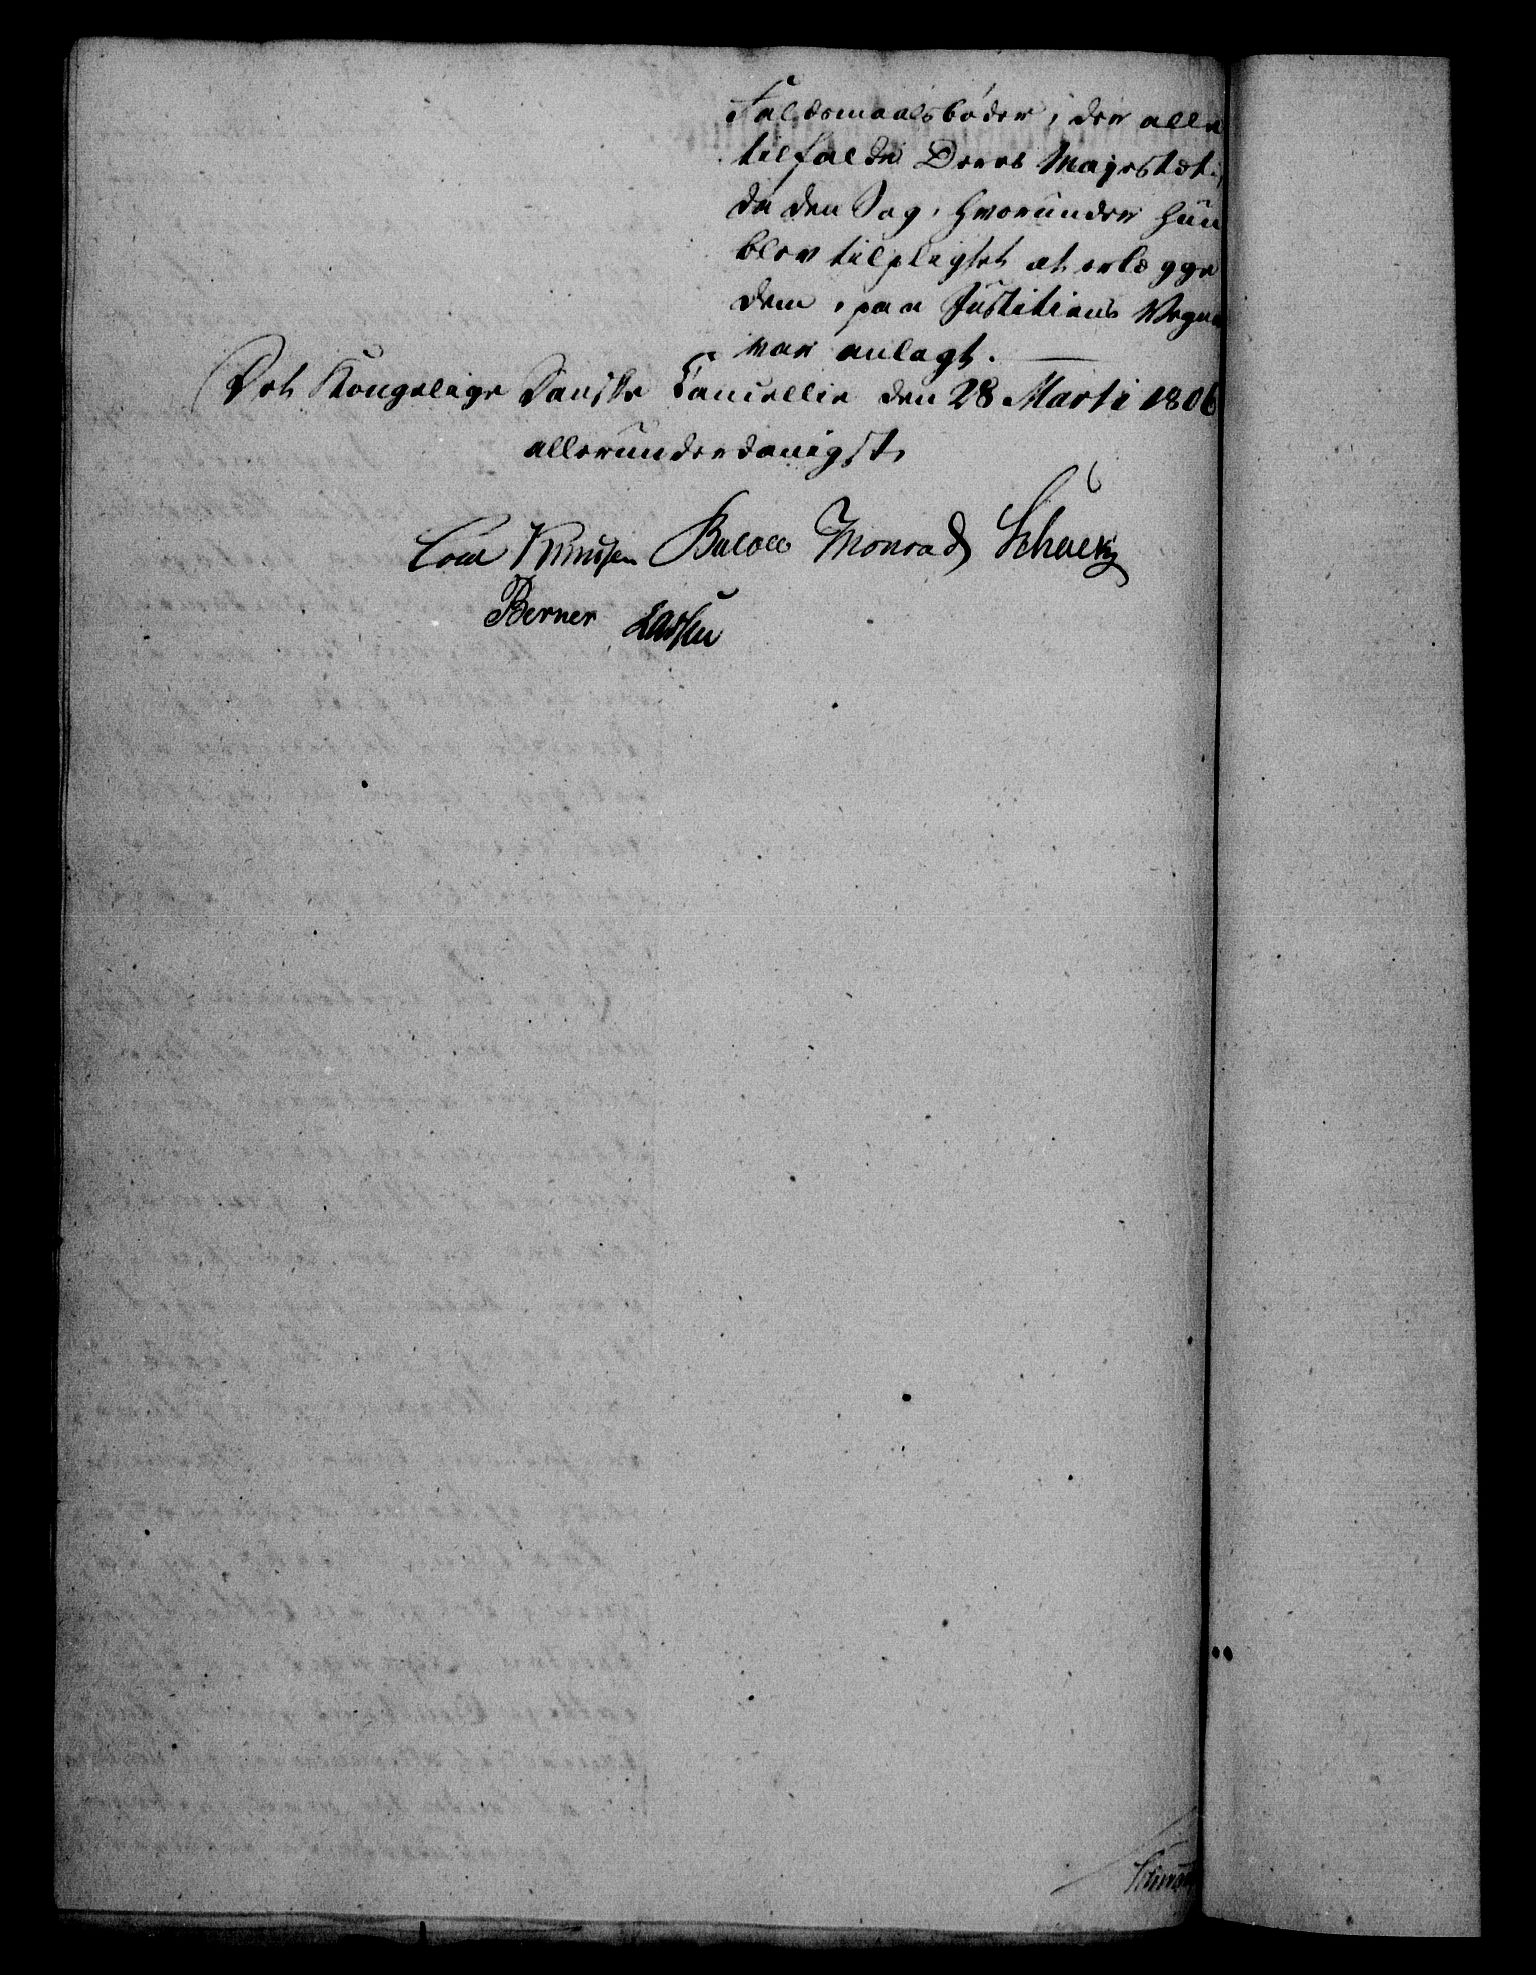 Faldsmaalsbøder, der alle
tilfalde Deres Majestæt,
da den Sag, hvorunder hun
blev tilpligtet at erlægge
dem, paa Justitiens Vegne
var anlagt.
Det Kongelige Danske Cancellie den 28 Marti 1806
allerunderdanigst,
Knudsen Bülow Monrad Schack
Berner Lassen